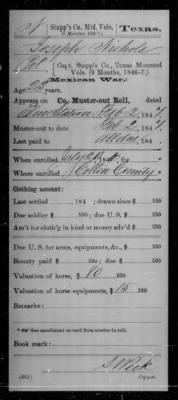 N | Stapp's Co., Mtd. Vols. | Texas.
(6 Months, 1846-7.)
Joseph Nichols
Pvt., Capt. Stapp's Co., Texas Mounted
Vols. (6 Months, 1846-7.)
Mexican War.
Age 22 years.
Appears on Co. Muster-out Roll,
dated
Feb 2, 1847.
Muster-out to date Feb 2, 1847.
Last paid to
When enrolled July, 1846.
Where enrolled Collin County
Clothing account:
Last settled , 184 ; drawn since $ 100
Due soldier $ 100; due U. S. $ 100
Am't for cloth'g in kind or money adv'd $ 100
Due U. S. for arms, equipments, &c., $ 100
Bounty paid $ 100; due $ 100
Valuation of horse, $ 60 100
Valuation of horse equipments, $ 15 100
Remarks:
* See enrollment on card from muster-in roll.
Book mark:
(361) Copyist.